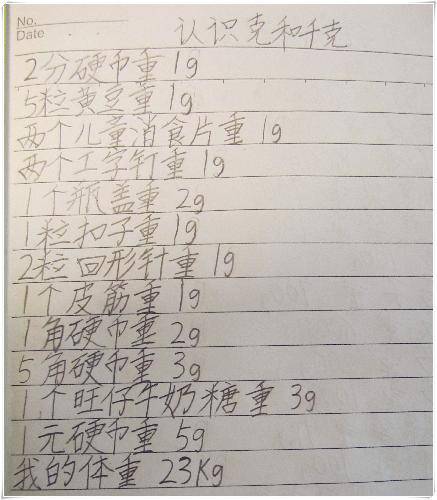 No.
Date
认识克和千克
2分硬币重 1g
5粒黄豆重 1g
两个儿童消食片重 1g
两个工字钉重 1g
1个瓶盖重 2g
1粒扣子重 1g
2粒回形针重 1g
1个皮筋重 1g
1角硬币重 2g
5角硬币重 3g
1个旺仔牛奶糖重 3g
1元硬币重 5g
我的体重 23Kg